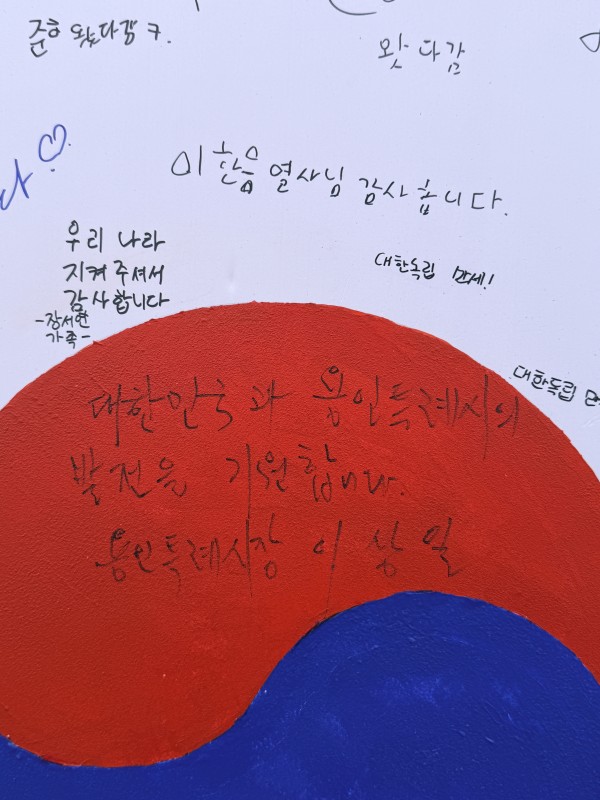 준호 왔다감 ㅋ.
왓다감
이한음 열사님 감사합니다.
우리 나라
지켜주셔서
감사합니다
-장서연
가족-
대한독립 만세!
대한독립
대한민국과 용인특례시의
발전을 기원합니다.
용인특례시장 이상일